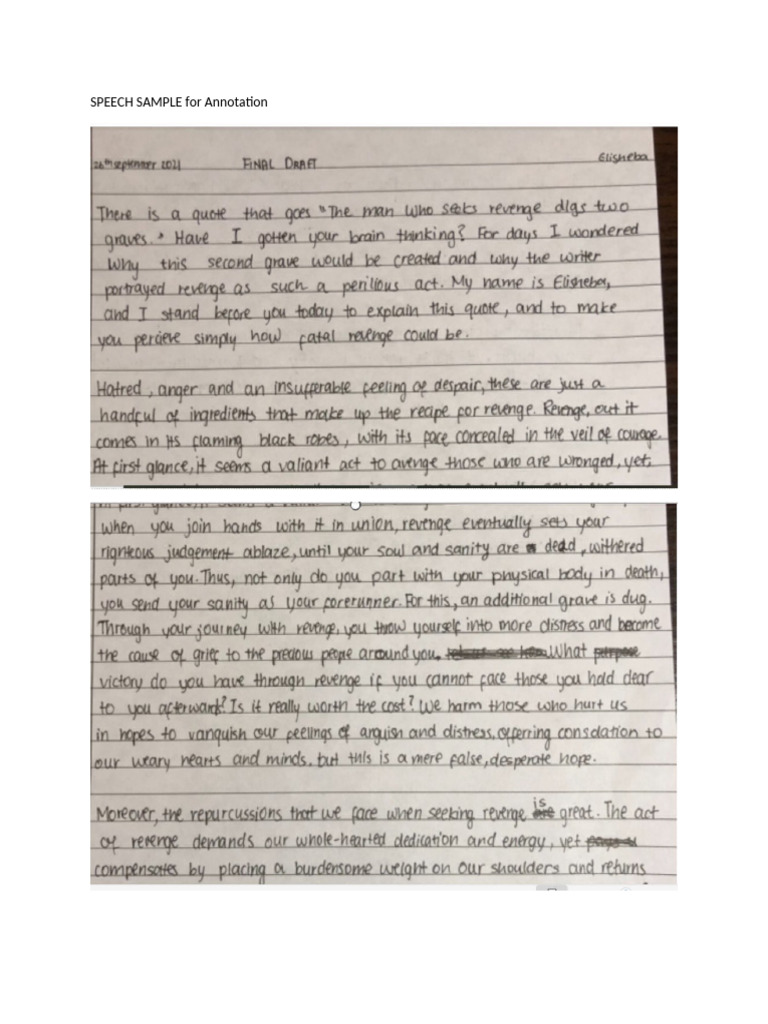 SPEECH SAMPLE for Annotation
26th september 2021 FINAL DRAFT Elisheba
There is a quote that goes "The man who seeks revenge digs two
graves." Have I gotten your brain thinking? For days I wondered
why this second grave would be created and why the writer
portrayed revenge as such a perilious act. My name is Elisheba,
and I stand before you today to explain this quote, and to make
you percieve simply how fatal revenge could be.
Hatred, anger and an insufferable feeling of despair, these are just a
handful of ingredients that make up the recipe for revenge. Revenge, out it
comes in its flaming black robes, with its face concealed in the veil of courage.
At first glance, it seems a valiant act to avenge those who are wronged, yet,
when you join hands with it in union, revenge eventually sets your
righteous judgement ablaze, until your soul and sanity are dead, withered
parts of you. Thus, not only do you part with your physical body in death,
you send your sanity as your forerunner. For this, an additional grave is dug.
Through your journey with revenge, you throw yourself into more distress and become
the cause of grief to the precious people around you. What
victory do you have through revenge if you cannot face those you hold dear
to you afterward? Is it really worth the cost? We harm those who hurt us
in hopes to vanquish our feelings of anguish and distress, offering consolation to
our weary hearts and minds, but this is a mere false, desperate hope.
Moreover, the repurcussions that we face when seeking revenge is great. The act
of revenge demands our whole-hearted dedication and energy, yet
compensates by placing a burdensome weight on our shoulders and returns